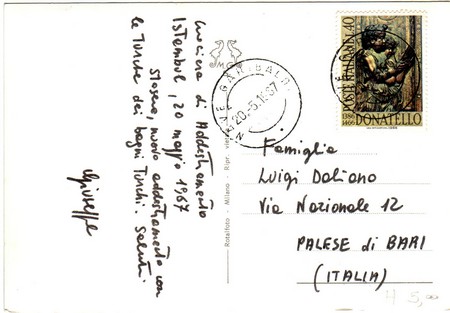 Crociera di Addestramento
Istanbul, 20 maggio 1967
Stasera, nuovo addestramento con
le Turche dei bagni Turchi. Saluti.
Giuseppe
SMG
Rotalfoto - Milano - Ripr. viet
NAVE GARIBALDI
20.5.67
POSTE ITALIANE 40
1386
1466 DONATELLO
Famiglia
Luigi Daliano
Via Nazionale 12
PALESE di BARI
(ITALIA)
H 5,00